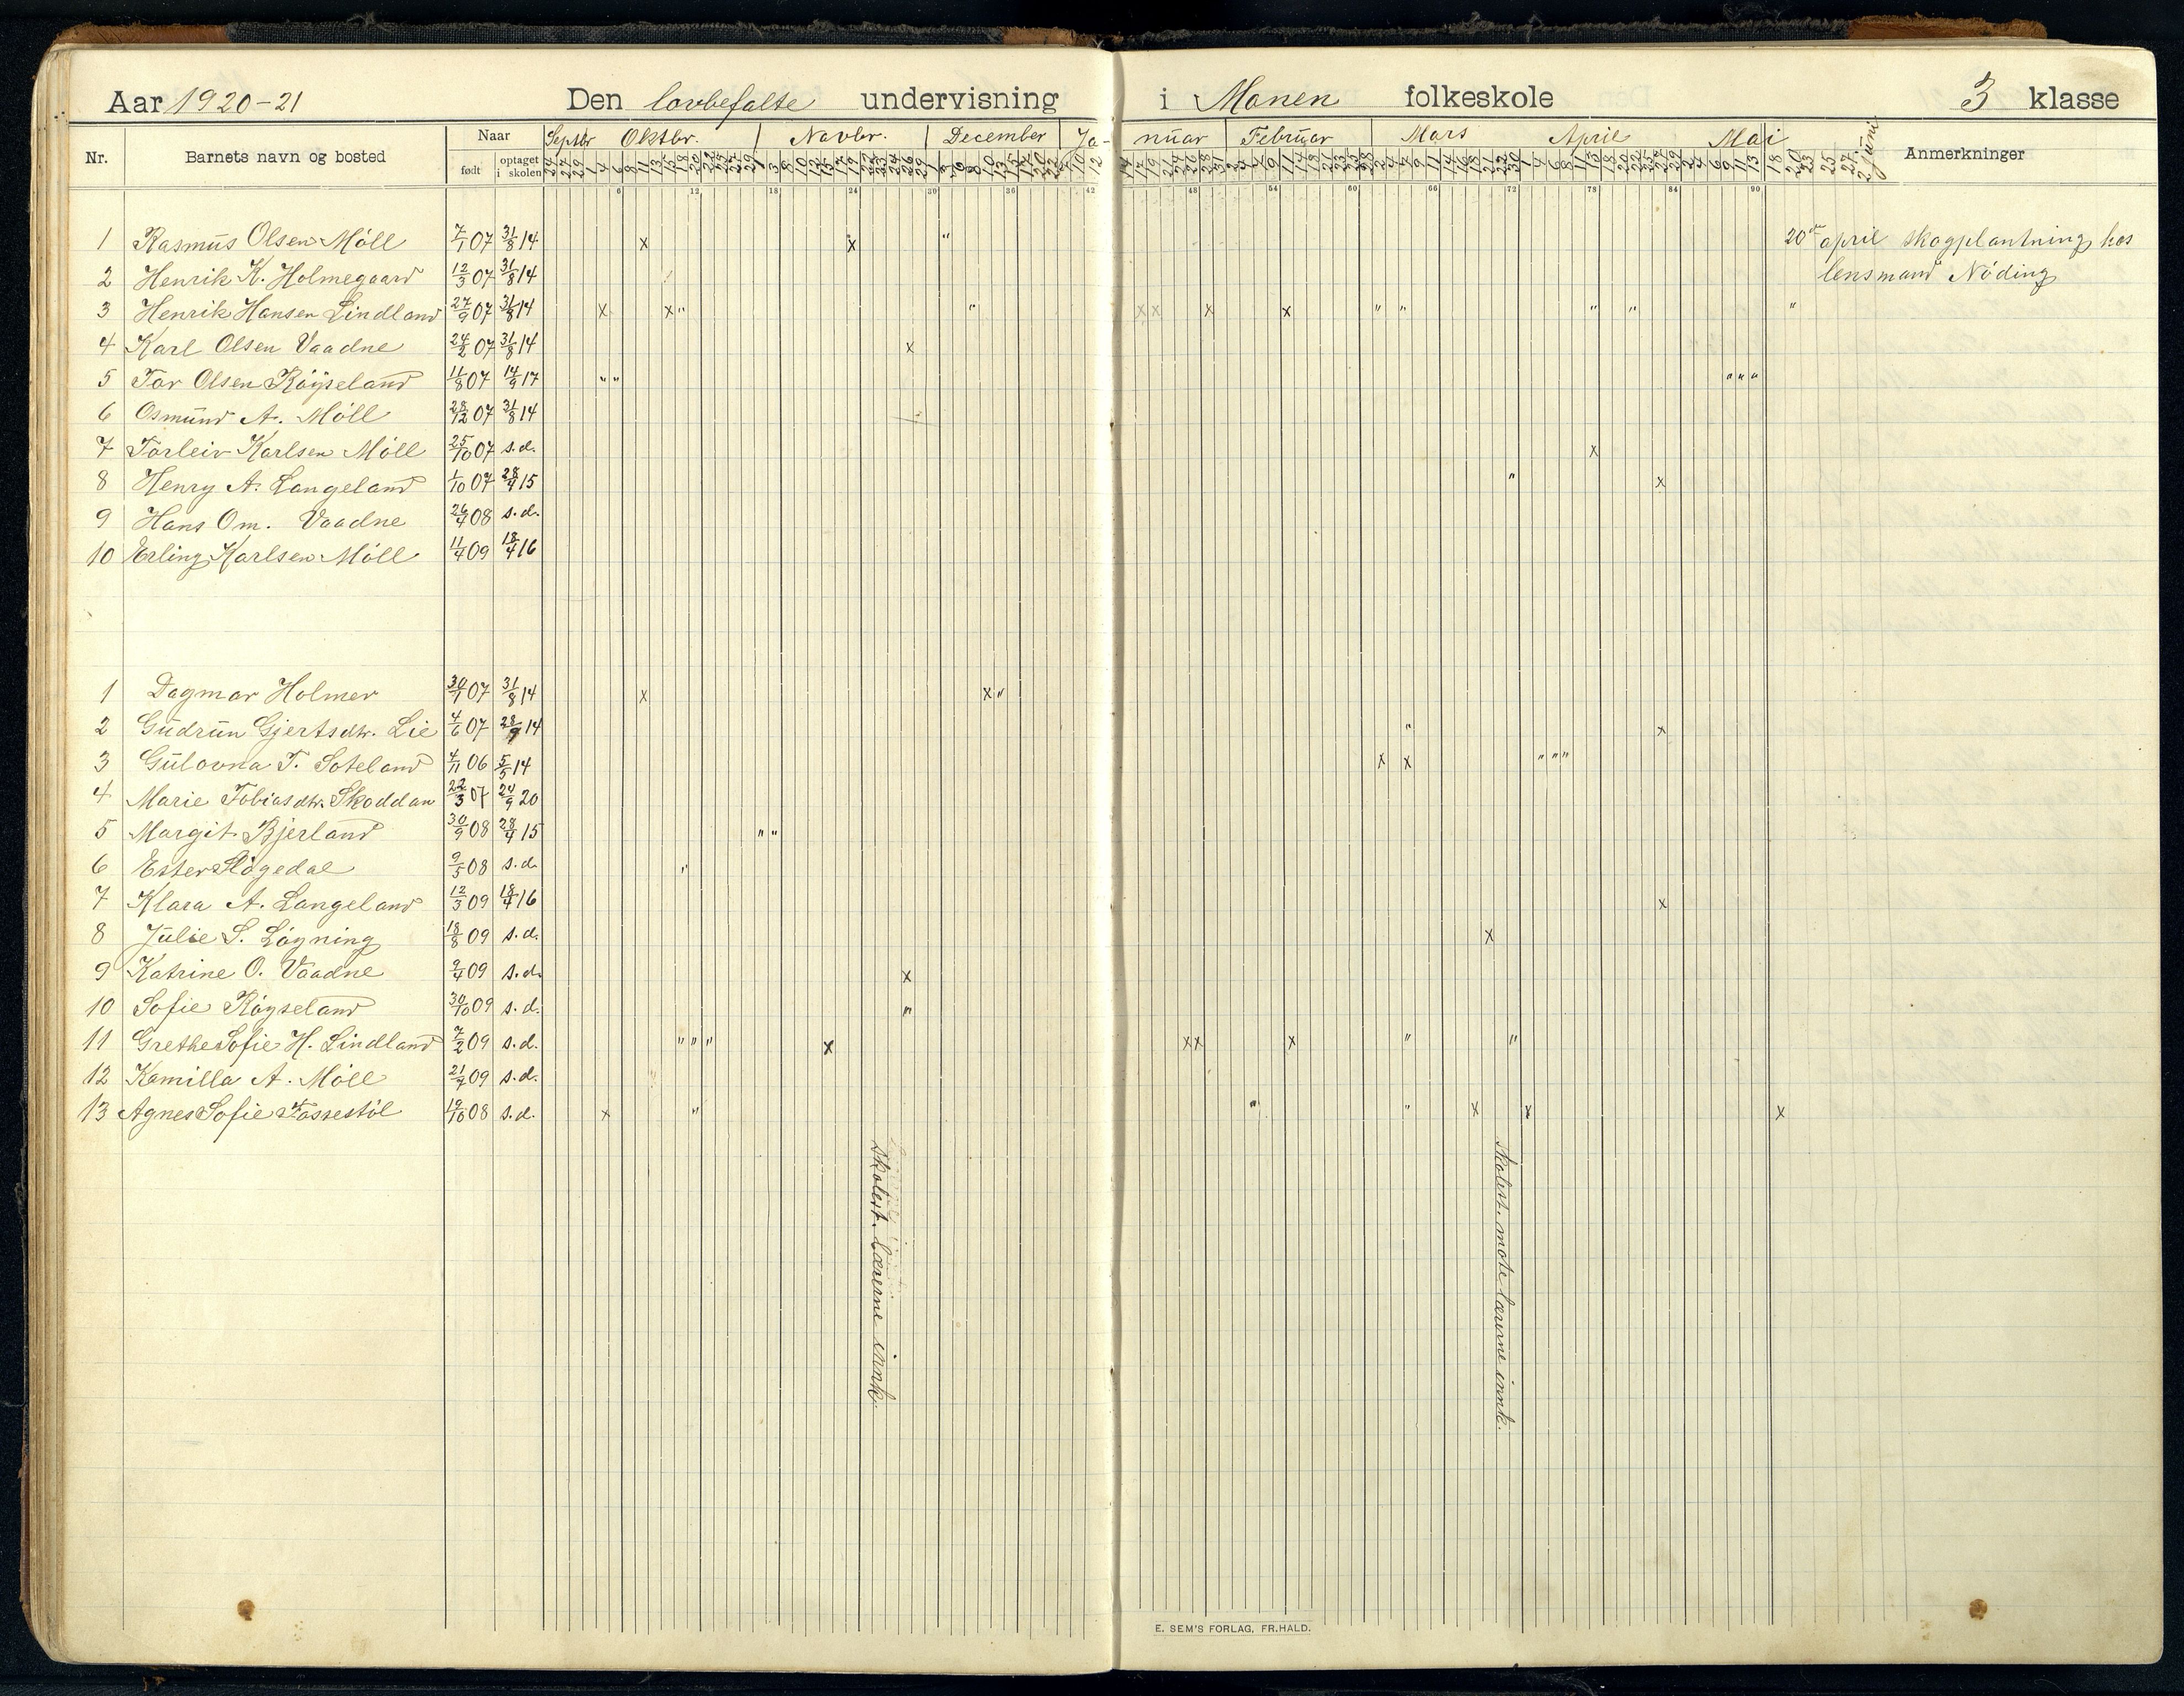 Aar 1920-21 Den lovbefalte undervisning i Monen folkeskole 3 klasse
Nr. Barnets navn og bosted Naar født optaget i skolen Septbr Oktbr. Novbr. December Ja- nuar Februar Mars April Mai Juni Anmerkninger
6 12 18 24 30 36 42 48 54 60 66 72 78 84 90
1 Rasmus Olsen Möll 7/1 07 31/8 14 x x " 20de april skogplantning hos
2 Henrik K. Holmegaard 12/3 07 31/8 14 lensmand Nöding
3 Henrik Hansen Lindland 27/9 07 31/8 14 x x " " x x x x " " " " "
4 Karl Olsen Vaadne 24/2 07 31/8 14 x
5 Tor Olsen Röyseland 11/8 07 14/9 17 " " " " "
6 Osmund A. Möll 28/12 07 31/8 14
7 Torleiv Karlsen Möll 25/10 07 s.d. x
8 Henry A. Langeland 1/10 07 28/4 15 " x
9 Hans Om. Vaadne 26/4 08 s.d.
10 Erling Karlsen Möll 11/4 09 18/4 16
1 Dagmar Holmer 30/1 07 31/8 14 x x "
2 Gudrun Gjertsdtr. Lie 4/6 07 28/9 14 " x
3 Gulovna T. Soteland 4/11 06 5/5 14 x x " " "
4 Marie Tobiasdtr. Skoddan 22/3 07 24/9 20
5 Margit Bjerland 30/9 08 28/4 15 " "
6 Ester Högedal 9/5 08 s.d. "
7 Klara A. Langeland 12/3 09 18/4 16 x
8 Julie S. Lögning 18/8 09 s.d. x
9 Katrine O. Vaadne 9/4 09 s.d. x
10 Sofie Röyseland 30/10 09 s.d. "
11 Grethe Sofie H. Lindland 7/2 09 s.d. " " " x x x x " "
12 Kamilla A. Möll 21/7 09 s.d.
13 Agnes Sofie Fossestöl 19/10 08 s.d. x " " " x x x
skolest. lærerne innk.
skolest. möte lærerne innk.
E. SEM'S FORLAG, FR.HALD.